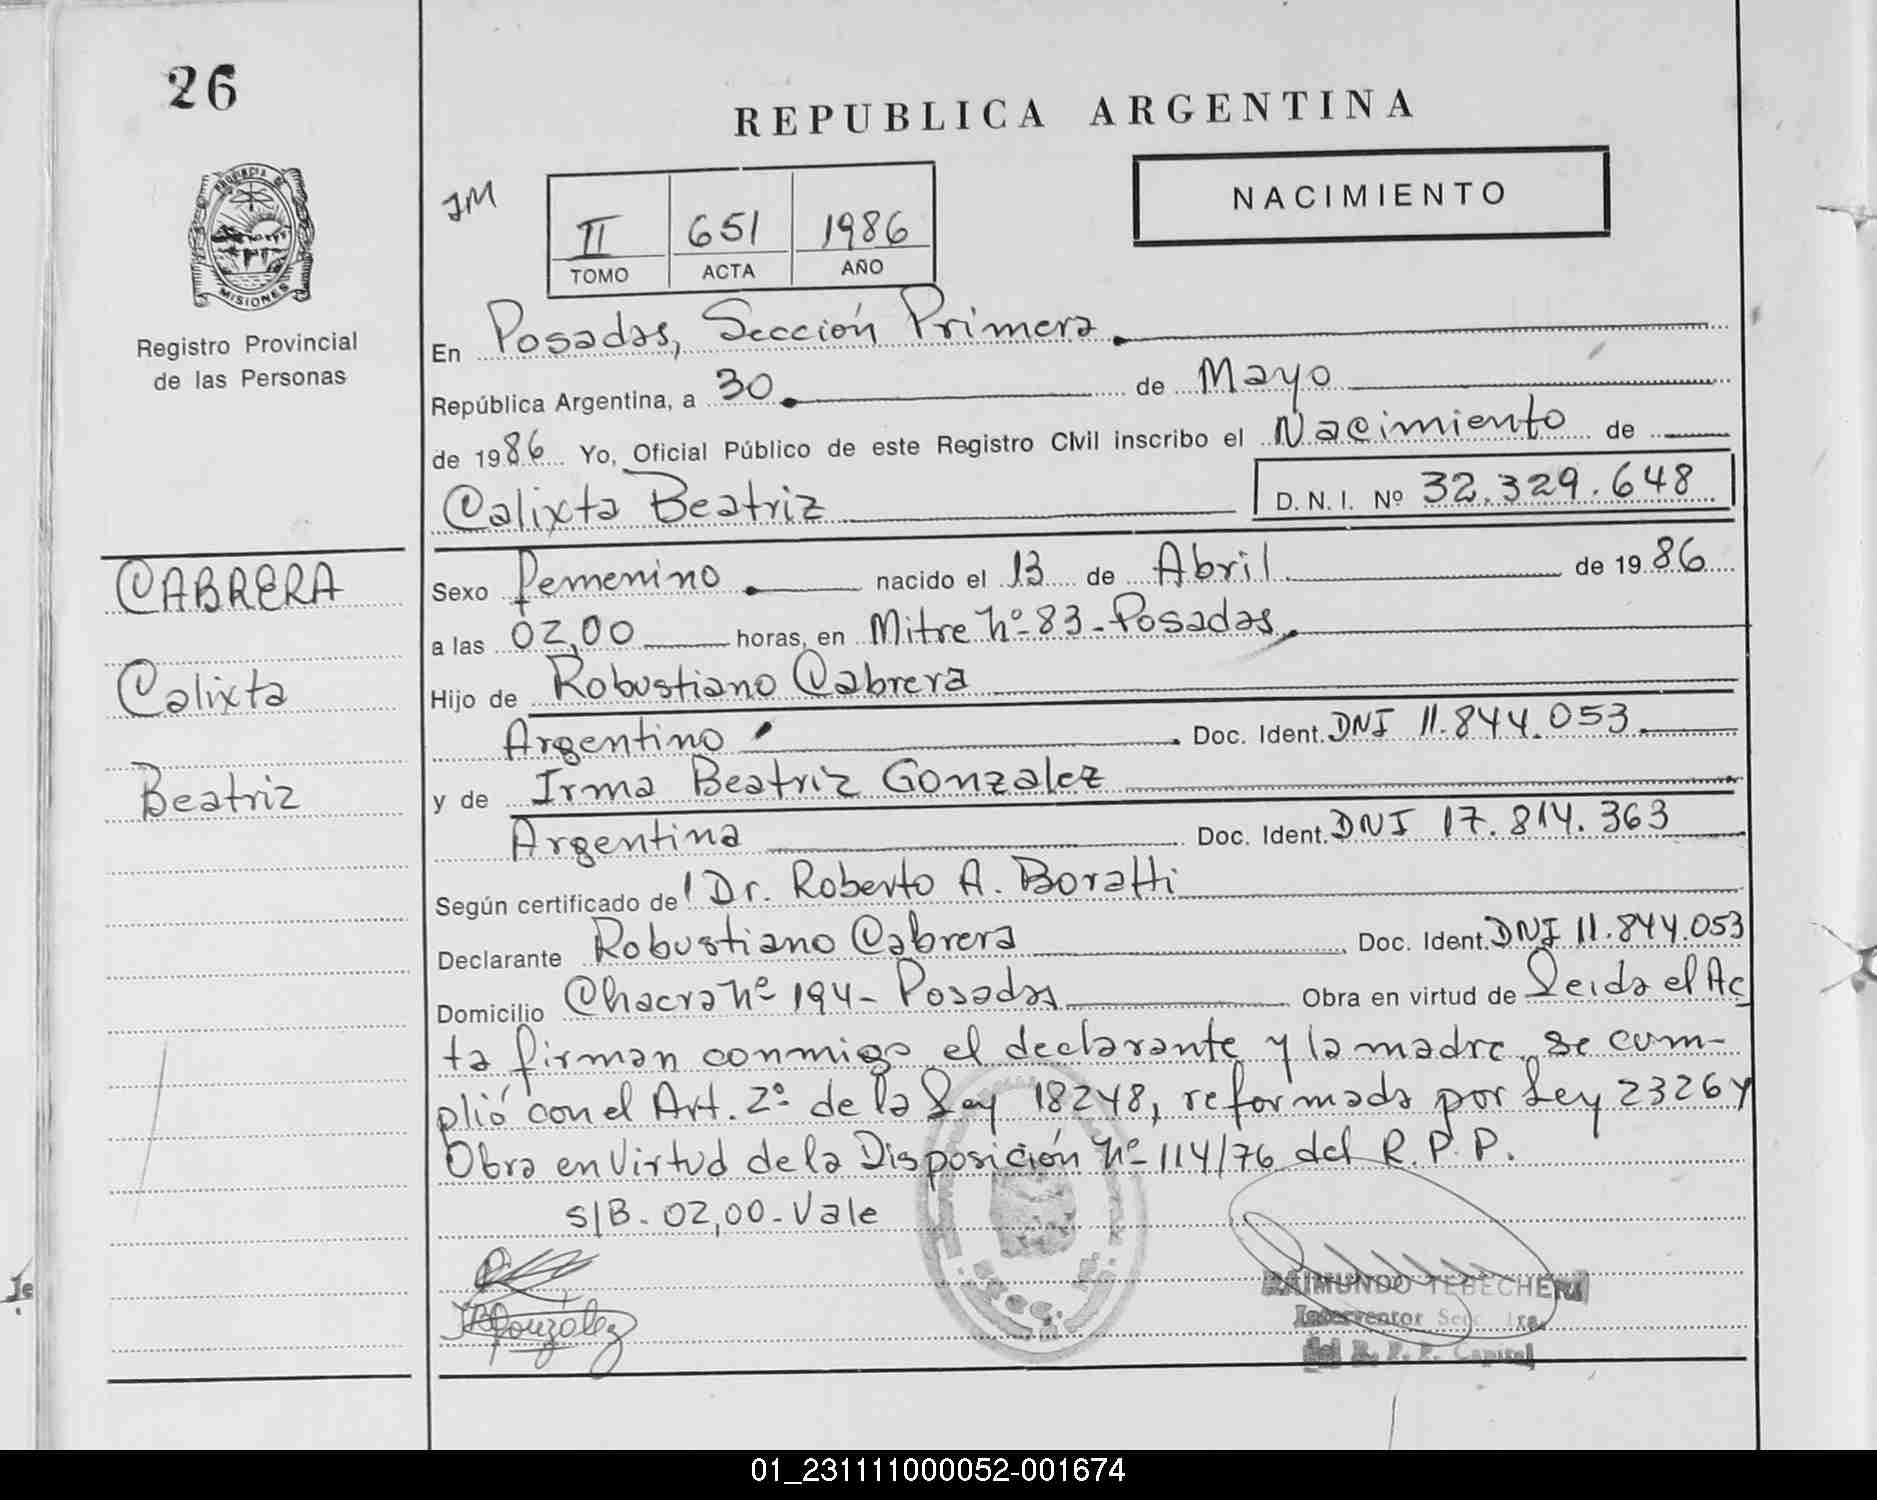 26
REPUBLICA ARGENTINA
NACIMIENTO
JM
II 651 1986
TOMO ACTA AÑO
PROVINCIA DE
MISIONES
Registro Provincial
de las Personas
En Posadas, Sección Primera
República Argentina, a 30 de Mayo
de 1986 Yo, Oficial Público de este Registro Civil inscribo el Nacimiento de
Calixta Beatriz D. N. I. Nº 32.329.648
CABRERA
Calixta
Beatriz
Sexo femenino nacido el 13 de Abril de 1986
a las 02,00 horas, en Mitre nº 83 - Posadas,
Hijo de Robustiano Cabrera
Argentino Doc. Ident. DNI 11.844.053
y de Irma Beatriz Gonzalez
Argentina Doc. Ident. DNI 17.814.363
Según certificado de Dr. Roberto A. Boratti
Declarante Robustiano Cabrera Doc. Ident. DNI 11.844.053
Domicilio Chacra nº 194 - Posadas Obra en virtud de Leida el Ac
ta firman conmigo el declarante y la madre. se cum-
plió con el Art. 2º de la Ley 18248, reformada por Ley 23264
Obra en Virtud de la Disposición nº 114/76 del R.P.P.
s/B. 02,00 - Vale
IBGonzález
RAIMUNDO TEBECHERI
Interventor Secc. 1ra.
del R. P. P. Capital
01_231111000052-001674